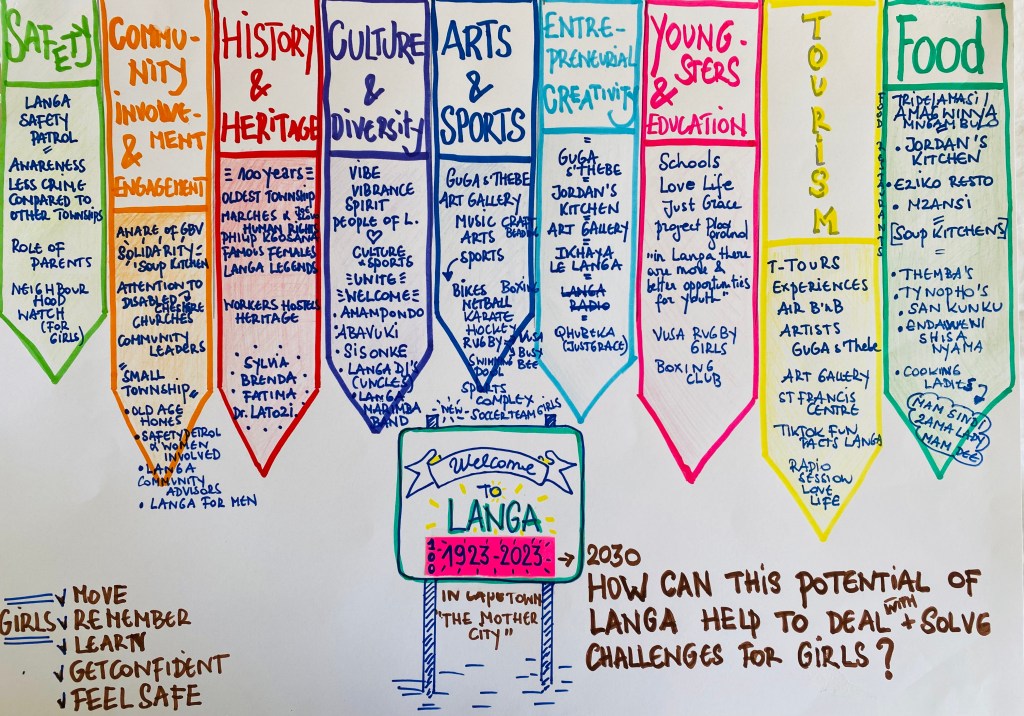 SAFETY
LANGA
SAFETY
PATROL
=
AWARENESS
LESS CRIME
COMPARED TO
OTHER TOWNSHIPS
ROLE OF
PARENTS
NEIGHBOUR
HOOD
WATCH
(FOR
GIRLS)
COMMU-
NITY
INVOLVE-
& MENT
ENGAGEMENT
AWARE OF GBV
SOLIDARITY
"SOUP KITCHEN"
ATTENTION TO
DISABLED
CHESIRE
CHURCHES
COMMUNITY
LEADERS
"SMALL
TOWNSHIP"
• OLD AGE
HOMES
• SAFETY PETROL
& WOMEN
INVOLVED
• LANGA
COMMUNITY
ADVISORS
• LANGA FOR MEN
HISTORY
&
HERITAGE
100 YEARS
OLDEST TOWNSHIP
MARCHES &
HUMAN RIGHTS
PHILIP KGOSANA
FAMOUS FEMALES
LANGA LEGENDS
WORKERS HOSTELS
HERITAGE
SYLVIA
BRENDA
FATIMA
Dr. LATOZI
CULTURE
&
DIVERSITY
VIBE
VIBRANCE
SPIRIT
PEOPLE OF L.
CULTURE
& SPORTS
=UNITE=
=WELCOME=
• AMAMPONDO
• ABAVUKI
• SISONKE
• LANGA DJ'S
(UNCLES)
• LANGA
MARIMBA
BAND
ARTS
&
SPORTS
GUGA S'THEBE
ART GALLERY
MUSIC CRAFT
ARTS BEADING
SPORTS
BIKES BOXING
NETBALL
KARATE
HOCKEY
RUGBY VUSA
SWIMMING BUSY
POOL BEE
SPORTS
COMPLEX
NEW - SOCCERTEAM GIRLS
ENTRE-
PRENEURIAL
CREATIVITY
GUGA
S'THEBE
=
JORDAN'S
KITCHEN
=
ART GALLERY
=
IKHAYA
LE LANGA
=
LANGA
RADIO
=
QHUBEKA
(JUSTGRACE)
YOUNG-
STERS
&
EDUCATION
Schools
Love Life
Just Grace
project Play
ground
"in Langa there
are more &
better opportunities
for youth"
VUSA RUGBY
GIRLS
BOXING
CLUB
TOURISM
T-TOURS
EXPERIENCES
AIR B'n'B
ARTISTS
GUGA S'Thebe
ART GALLERY
ST FRANCIS
CENTRE
TIKTOK FUN
FACTS LANGA
RADIO
SESSION
LOVE
LIFE
Food
TRIPE/AMASI/
AMAGWINYA
• JORDAN'S
KITCHEN
• EZIKO RESTO
• MZANSI
[SOUP KITCHENS]
• THEMBA'S
• TYNOPHO'S
• SAN KUNKU
• ENDAWENI
SHISA
NYAMA
• COOKING
LADIES
MAM SINDI
ZAMA LADY
MAM DEE
Welcome
TO
LANGA
100 1923-2023 → 2030
IN CAPETOWN
"THE MOTHER
CITY"
HOW CAN THIS POTENTIAL OF
LANGA HELP TO DEAL WITH + SOLVE
CHALLENGES FOR GIRLS?
GIRLS
✓ MOVE
✓ REMEMBER
✓ LEARN
✓ GET CONFIDENT
✓ FEEL SAFE